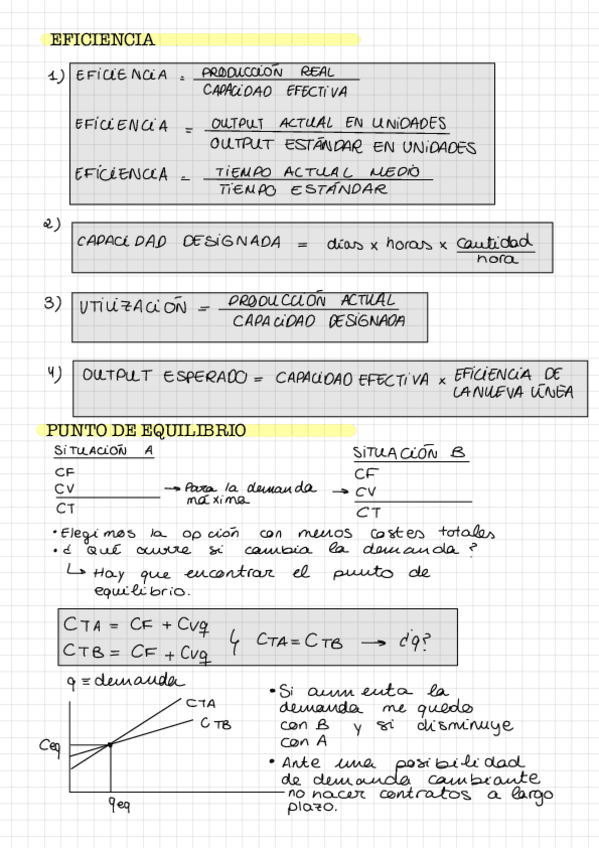 EFICIENCIA
1) EFICIENCIA = PRODUCCIÓN REAL / CAPACIDAD EFECTIVA
EFICIENCIA = OUTPUT ACTUAL EN UNIDADES / OUTPUT ESTÁNDAR EN UNIDADES
EFICIENCIA = TIEMPO ACTUAL MEDIO / TIEMPO ESTÁNDAR
2) CAPACIDAD DESIGNADA = días x horas x cantidad / hora
3) UTILIZACIÓN = PRODUCCIÓN ACTUAL / CAPACIDAD DESIGNADA
4) OUTPUT ESPERADO = CAPACIDAD EFECTIVA x EFICIENCIA DE
LA NUEVA LÍNEA
PUNTO DE EQUILIBRIO
SITUACIÓN A
CF
CV
CT
→ Para la demanda
máxima →
SITUACIÓN B
CF
CV
CT
• Elegimos la opción con menos costes totales
• ¿Qué ocurre si cambia la demanda?
↳ Hay que encontrar el punto de
equilibrio.
CTA = CF + CVq
CTB = CF + CVq
CTA = CTB → ¿q?
q ≡ demanda
CTA
CTB
Ceq
qeq
• Si aumenta la
demanda me quedo
con B y si disminuye
con A
• Ante una posibilidad
de demanda cambiante
no hacer contratos a largo
plazo.